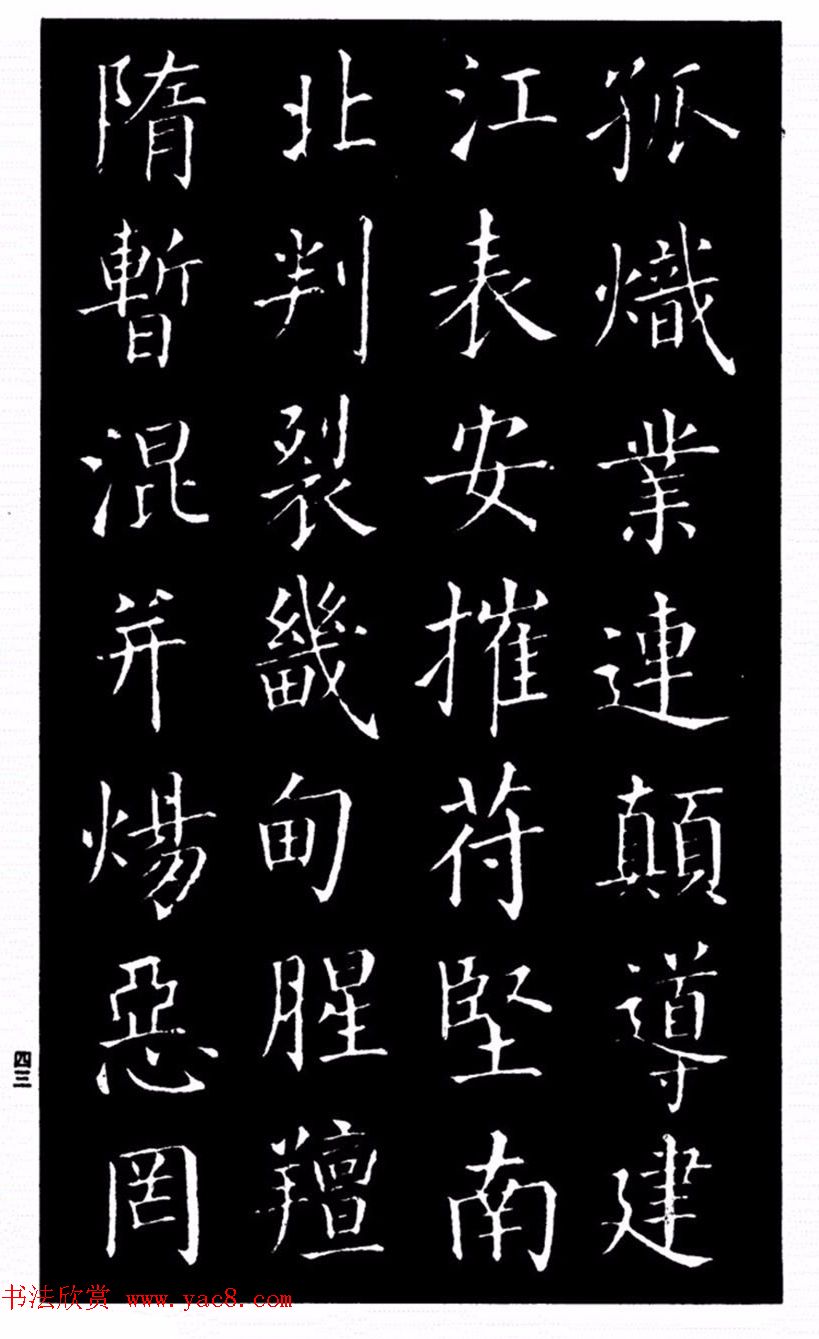 孤熾業連顛導建
江表安摧苻堅南
北判裂畿甸腥羶
隋暫混并煬惡罔
四三
书法欣赏 www.yac8.com